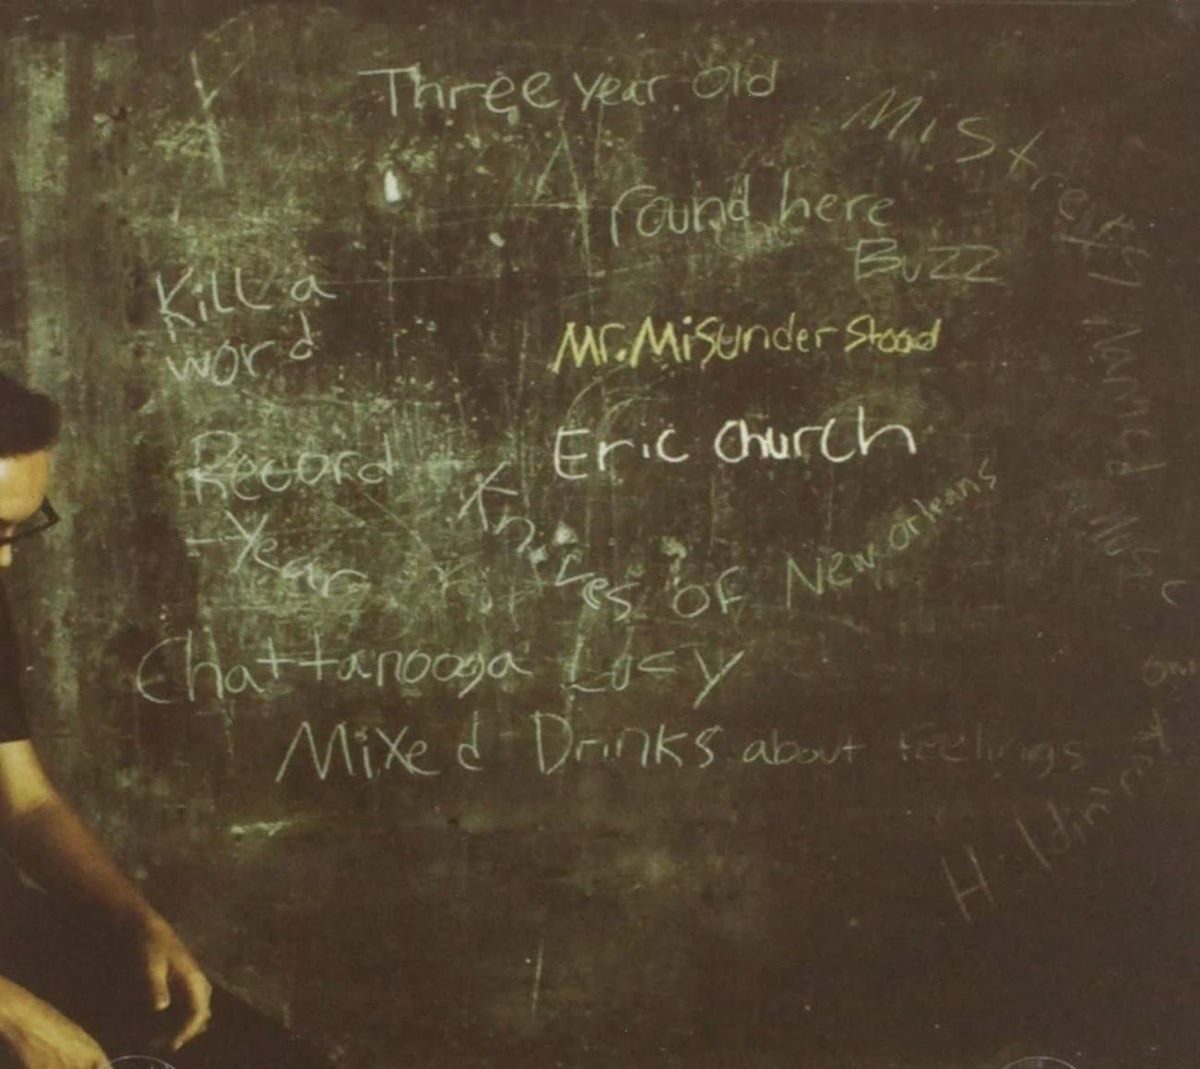 Three year old
Mistress Named Music
round here
Buzz
Kill a
word
Mr. Misunderstood
Eric Church
Record
Year
Knives of New orleans
Chattanooga Lucy
Mixed Drinks about feelings
Holdin